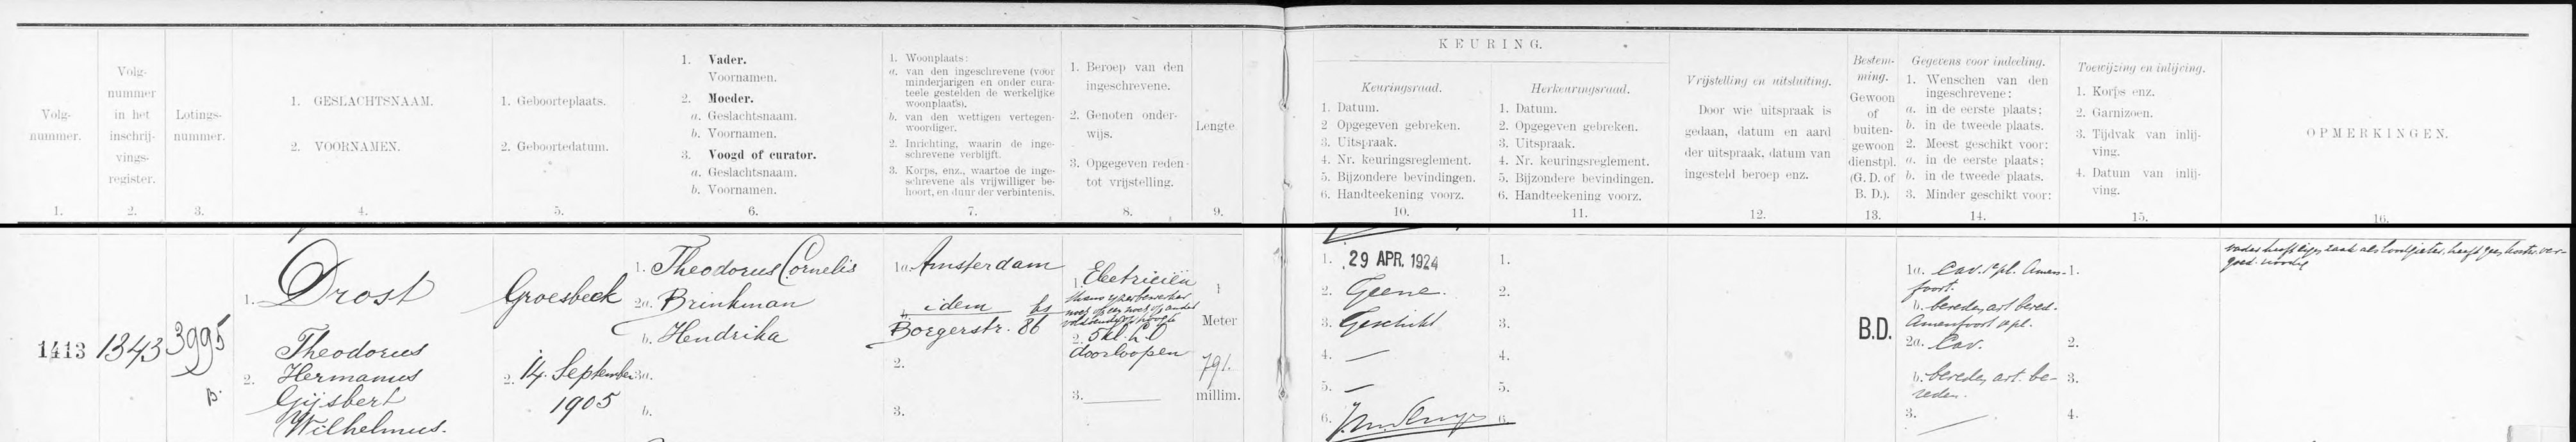 KEURING.
Volg-
nummer.
1.
Volg-
nummer
in het
inschrij-
vings-
register.
2.
Lotings-
nummer.
3.
1. GESLACHTSNAAM.
2. VOORNAMEN.
4.
1. Geboorteplaats.
2. Geboortedatum.
5.
1. Vader.
Voornamen.
2. Moeder.
a. Geslachtsnaam.
b. Voornamen.
3. Voogd of curator.
a. Geslachtsnaam.
b. Voornamen.
6.
1. Woonplaats:
a. van den ingeschrevene (voor
minderjarigen en onder cura-
teele gestelden de werkelijke
woonplaats).
b. van den wettigen vertegen-
woordiger.
2. Inrichting, waarin de inge-
schrevene verblijft.
3. Korps, enz., waartoe de inge-
schrevene als vrijwilliger be-
hoort, en duur der verbintenis.
7.
1. Beroep van den
ingeschrevene.
2. Genoten onder-
wijs.
3. Opgegeven reden
tot vrijstelling.
8.
Lengte
9.
Keuringsraad.
1. Datum.
2 Opgegeven gebreken.
3. Uitspraak.
4. Nr. keuringsreglement.
5. Bijzondere bevindingen.
6. Handteekening voorz.
10.
Herkeuringsraad.
1. Datum.
2. Opgegeven gebreken.
3. Uitspraak.
4. Nr. keuringsreglement.
5. Bijzondere bevindingen.
6. Handteekening voorz.
11.
Vrijstelling en uitsluiting.
Door wie uitspraak is
gedaan, datum en aard
der uitspraak, datum van
ingesteld beroep enz.
12.
Bestem-
ming.
Gewoon
of
buiten-
gewoon
dienstpl.
(G. D. of
B. D.).
13.
Gegevens voor indeeling.
1. Wenschen van den
ingeschrevene:
a. in de eerste plaats;
b. in de tweede plaats.
2. Meest geschikt voor:
a. in de eerste plaats;
b. in de tweede plaats.
3. Minder geschikt voor:
14.
Toewijzing en inlijving.
1. Korps enz.
2. Garnizoen.
3. Tijdvak van inlij-
ving.
4. Datum van inlij-
ving.
15.
OPMERKINGEN.
16.
1413
1343
3995
B.
1. Drost
2. Theodorus
Hermanus
Gijsbert
Wilhelmus.
Groesbeek
2. 14. September
1905
1. Theodorus Cornelis
2a. Brinkman
b. Hendrika
3a.
b.
1a. Amsterdam
b. idem hs
Borgerstr. 86
2.
3.
1. Electriciën
thans
2. 5 kl. h
doorloopen
3.
1
Meter
791.
millim.
1. 29 APR. 1924
2. Geene.
3. Geschikt
4. —
5. —
6.
1.
2.
3.
4.
5.
6.
B.D.
1a. Cav. Amers-
foort.
b. bereden art. bered.
Amersfoort
2a. Cav.
b. bereden art. be-
reden.
3. —
1.
2.
3.
4.
vader heeft eigen zaak als loodgieter, heeft geen kostw. ver-
goed. noodig